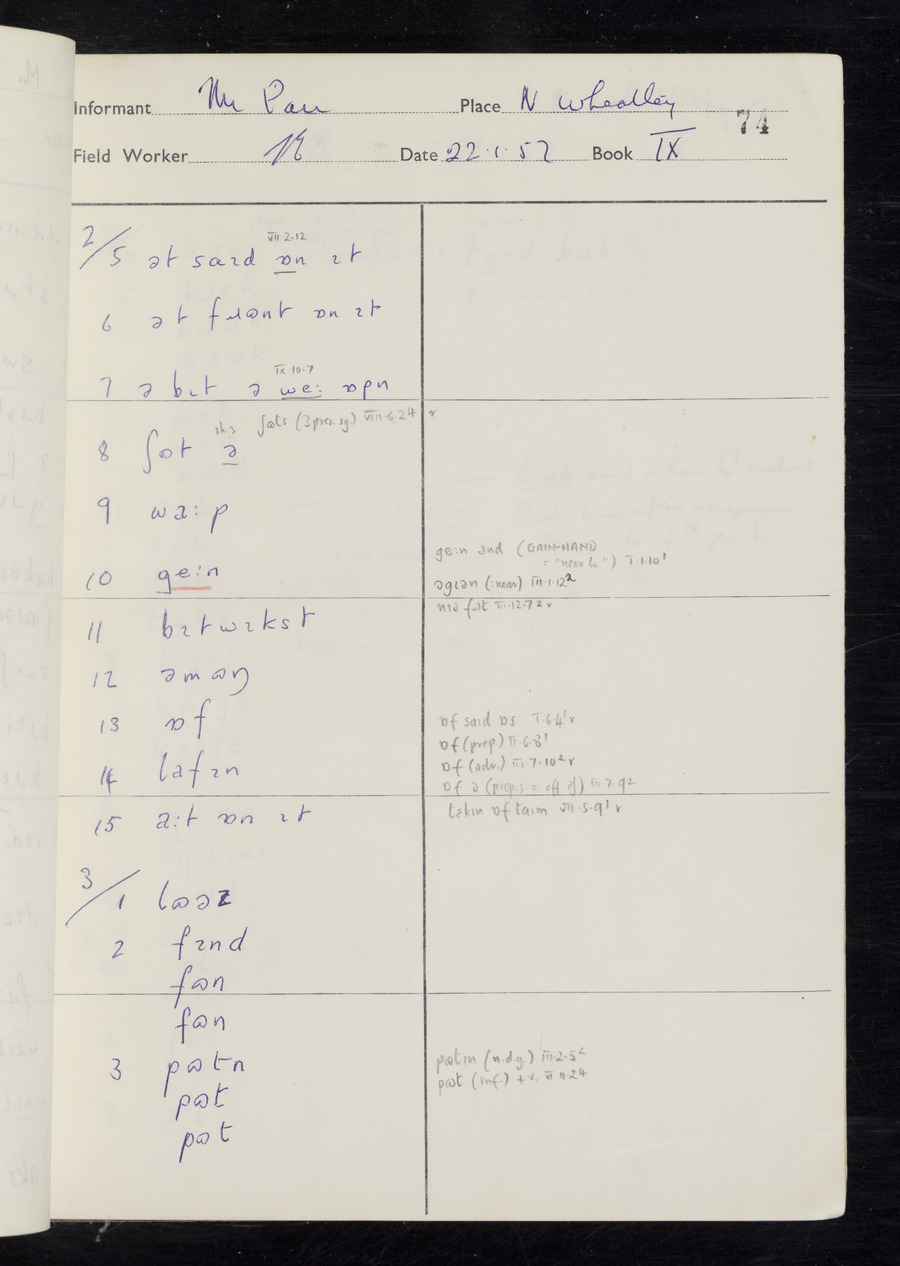 Informant Mr Parr Place N Wheatley
74
Field Worker Date 22.1.57 Book IX
VII.2.12
2/5 ət saɪd ɒn ɪt
6 ət fɹɷnt ɒn ɪt
IX.10.7
7 ə bɪt ə weː ɒpn
sh.s ʃɷts (3 pres. sg.) VIII.6.24 v
8 ʃɷt ə
9 waːp
geːn and (GAIN-HAND
= "near to") I.1.10¹
10 geːn
əgɪən (=near) III.1.12²
nɪə fɪt III.12.7² v
11 bɪtwɪkst
12 əmɷŋ
13 ɒf
ɒf saɪd ɒs I.6.4¹ v
ɒf (prep.) II.6.8¹
ɒf (adv.) III.7.10² v
14 lafɪn
ɒf ə (prep.s = off of) III.7.9²
15 aːt ɒn ɪt
tɛkɪn ɒf taɪm VII.5.9¹ v
3/1 lɷəz
2 fɪnd
fɷn
fɷn
3 pɷtn
pɷtɪn (n.dg.) III.2.5²
pɷt (inf.) + v. VI.11.24
pɷt
pɷt